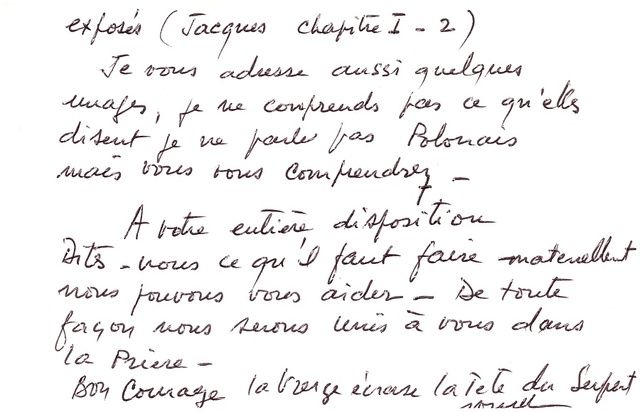 exposés (Jacques chapitre I - 2)
Je vous adresse aussi quelques
images, je ne comprends pas ce qu'elles
disent je ne parle pas Polonais
mais vous vous comprendrez -
A votre entière disposition
Dites-nous ce qu'il faut faire - matériellement
nous pouvons vous aider - De toute
façon nous serons unis à vous dans
la Prière -
Bon Courage la Vierge écrase la Tête du Serpent